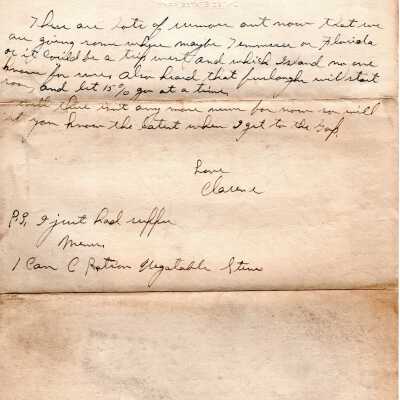 There are lots of rumors out now that we
are going some where maybe Tennessee or Florida
or it could be a trip west and which Island no one
knows for sure. Also heard that furloughs will start
soon and let 15% go at a time.
Well there isn't any more news for now so will
let you know the latest when I get to the
Love
Clarence
P.S. I just had supper
Menu
1 Can C Ration Vegatable Stew